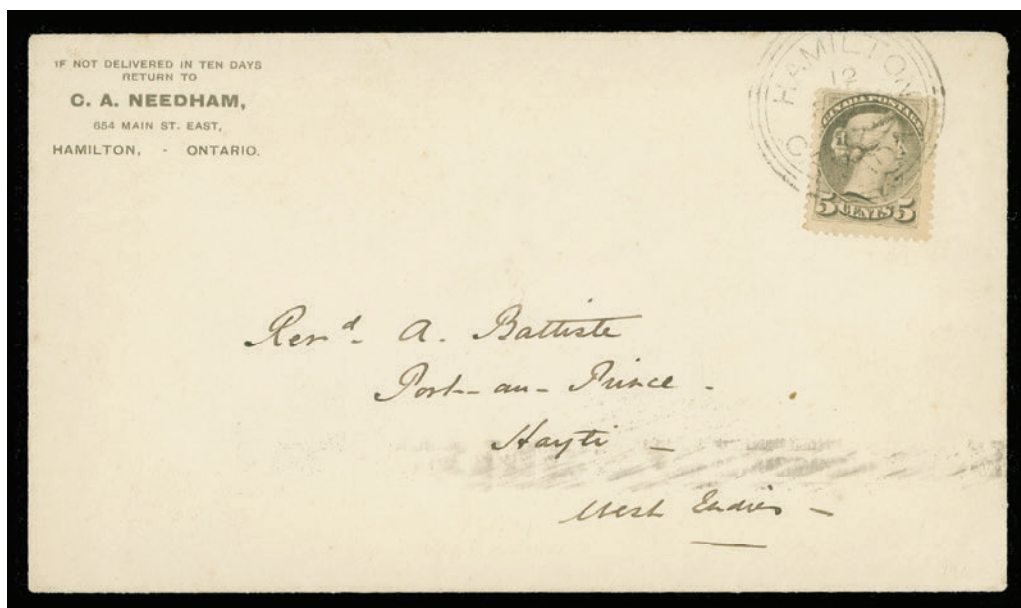 IF NOT DELIVERED IN TEN DAYS
RETURN TO
C. A. NEEDHAM,
654 MAIN ST. EAST,
HAMILTON, - ONTARIO.
HAMILTON
12
CANADA POSTAGE
5 CENTS 5
Revd. A. Battiste
Port-au-Prince -
Hayti -
West Indies -